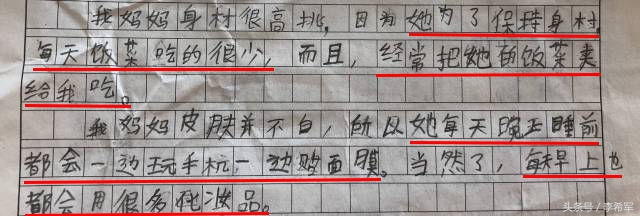 我妈妈身材很高挑，因为她为了保持身材，
每天饭菜吃的很少，而且，经常把她的饭菜夹
给我吃。
我妈妈皮肤并不白，所以她每天晚上睡前
都会一边玩手机，一边敷面膜。当然了，每早上也
都会用很多化妆品。
头条号／李希军